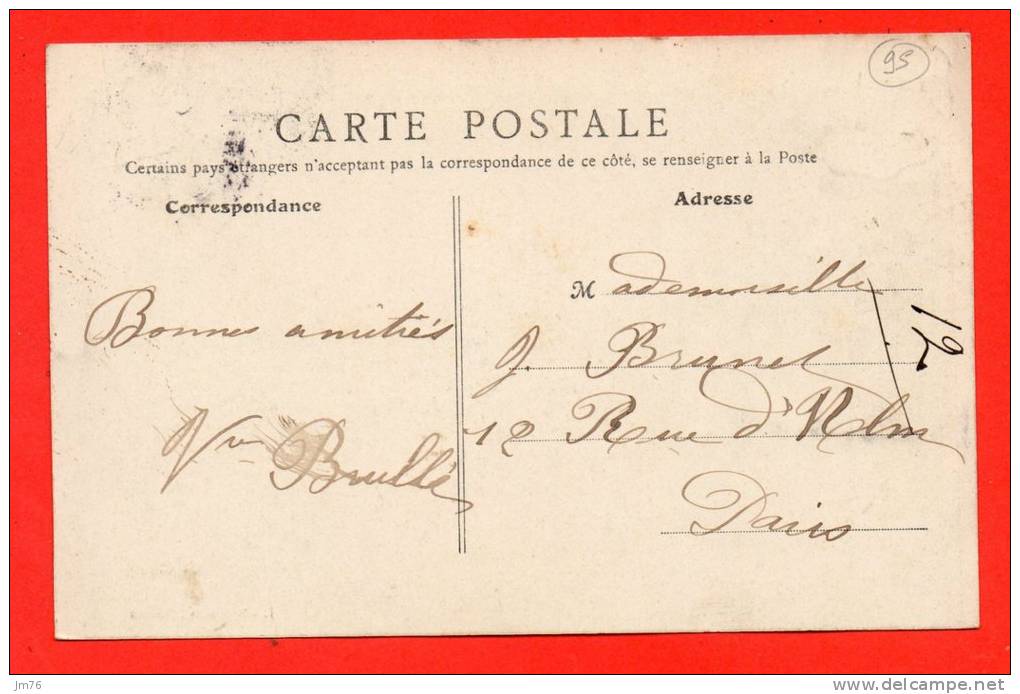 95
CARTE POSTALE
Certains pays étrangers n'acceptant pas la correspondance de ce côté, se renseigner à la Poste
Correspondance
Bonnes amitiés
Vve Brullé
Adresse
Mademoiselle
J. Brunel
12 Rue d'Ulm
Paris
12
jm76
www.delcampe.net